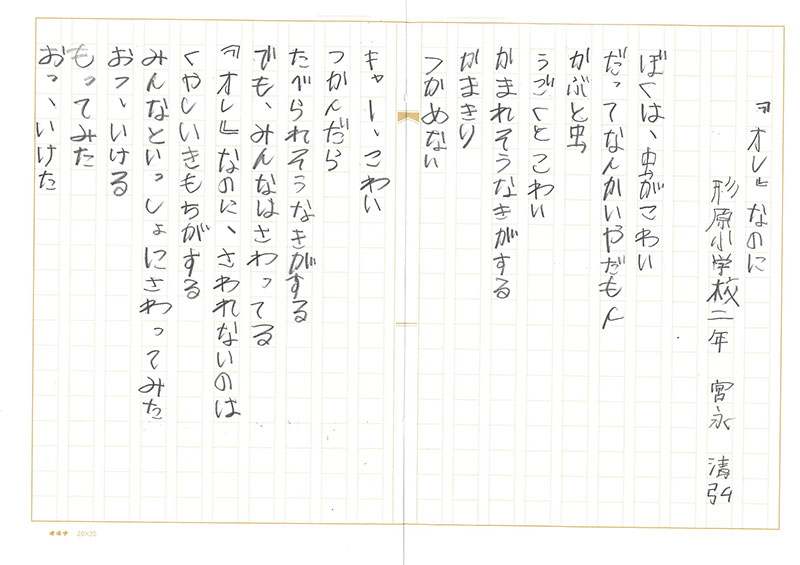 『オレ』なのに
形原小学校二年 宮永 清弘
ぼくは、虫がこわい
だってなんかいやだもん
かぶと虫
うごくとこわい
かまれそうなきがする
かまきり
つかめない
キャー、こわい
つかんだら
たべられそうなきがする
でも、みんなはさわってる
『オレ』なのに、さわれないのは
くやしいきもちがする
みんなといっしょにさわってみた
おっ、いける
もってみた
おっ、いけた
オキナ 20×20